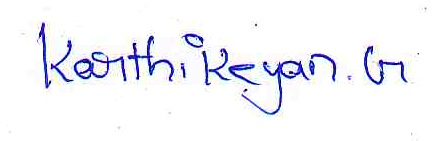 Karthikeyan. G